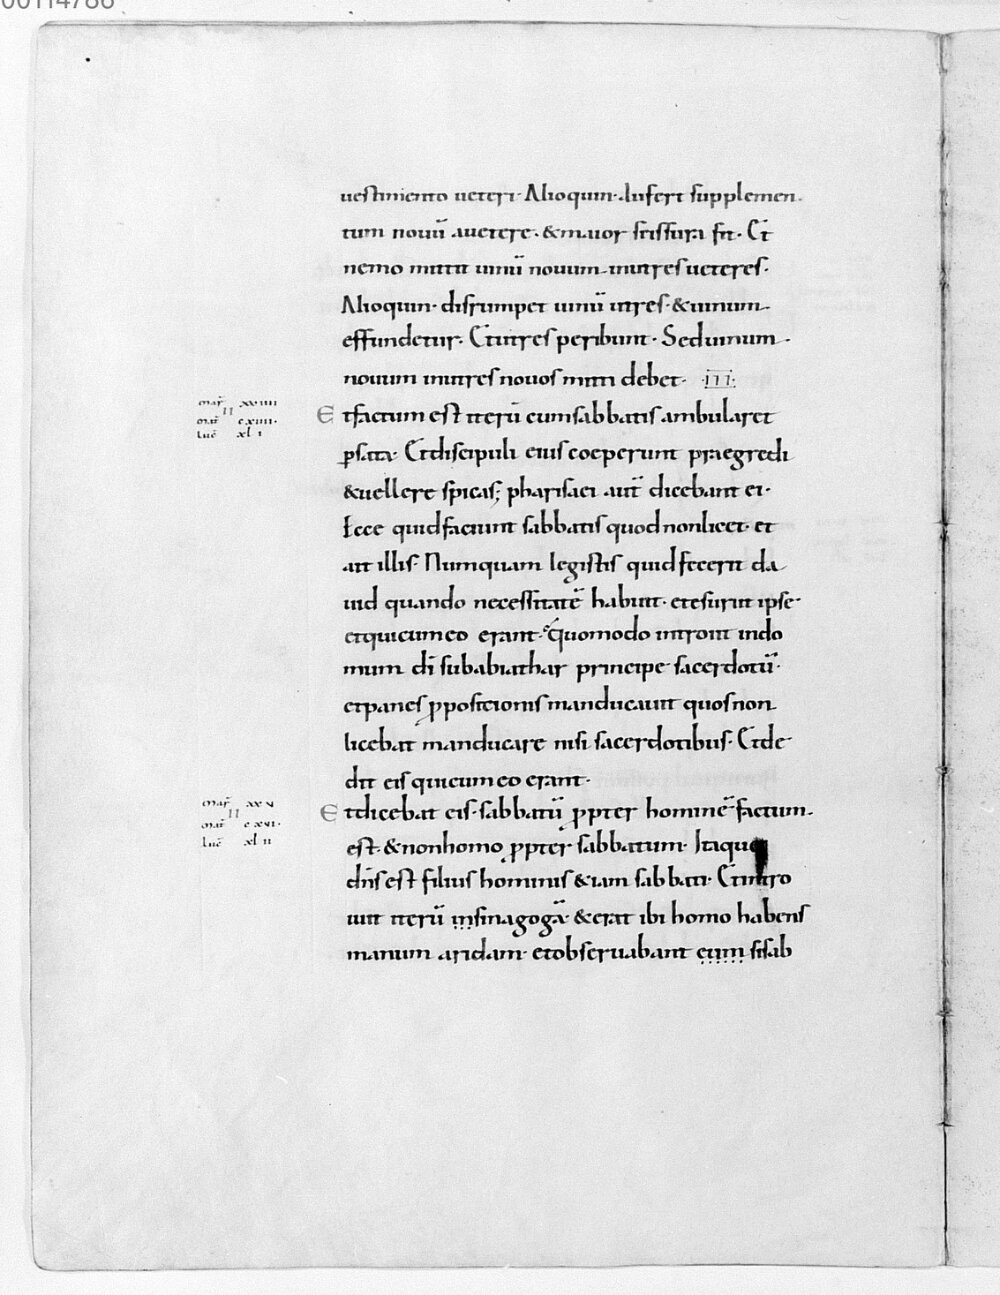 00114786
uestimento ueteri· Alioquin· Aufert supplemen
tum nouū auetere· &maior scissura fit· Et
nemo mittit uinū nouum inutres ueteres·
Alioquin· disrumpet uinū utres· &uinum
effundetur· Etutres peribunt· Seduinum
nouum inutres nouos mitti debet· ·III·
mar̄ xxiiii
II
mat̄ cxiiii·
luc̄ xli
Etfactum est iterū cumsabbatis ambularet
p̱sata· Etdiscipuli eius coeperunt praegredi
&uellere spicas; pharisaei aut̄ dicebant ei·
Ecce quidfaciunt sabbatis quod nonlicet· et
ait illis· Numquam legistis quidfecerit da
uid quando necessitatē habuit· etesuriit ipse·
etquicumeo erant· Quomodo introiit indo
mum dī subabiathar principe sacerdotū·
etpanes p̱positionis manducauit quosnon
licebat manducare nisi sacerdotibus· Etde
dit eis quicumeo erant·
mar̄ xxv
II
mat̄ cxvi·
luc̄ xlii
Etdicebat eis· sabbatū p̱pter hominē factum
est· &nonhomo p̱pter sabbatum· Itaque
dn̄s est filius hominis &iam sabbati· Etintro
iuit iterū insinagogā· &erat ibi homo habens
manum aridam· etobseruabant eum sisab